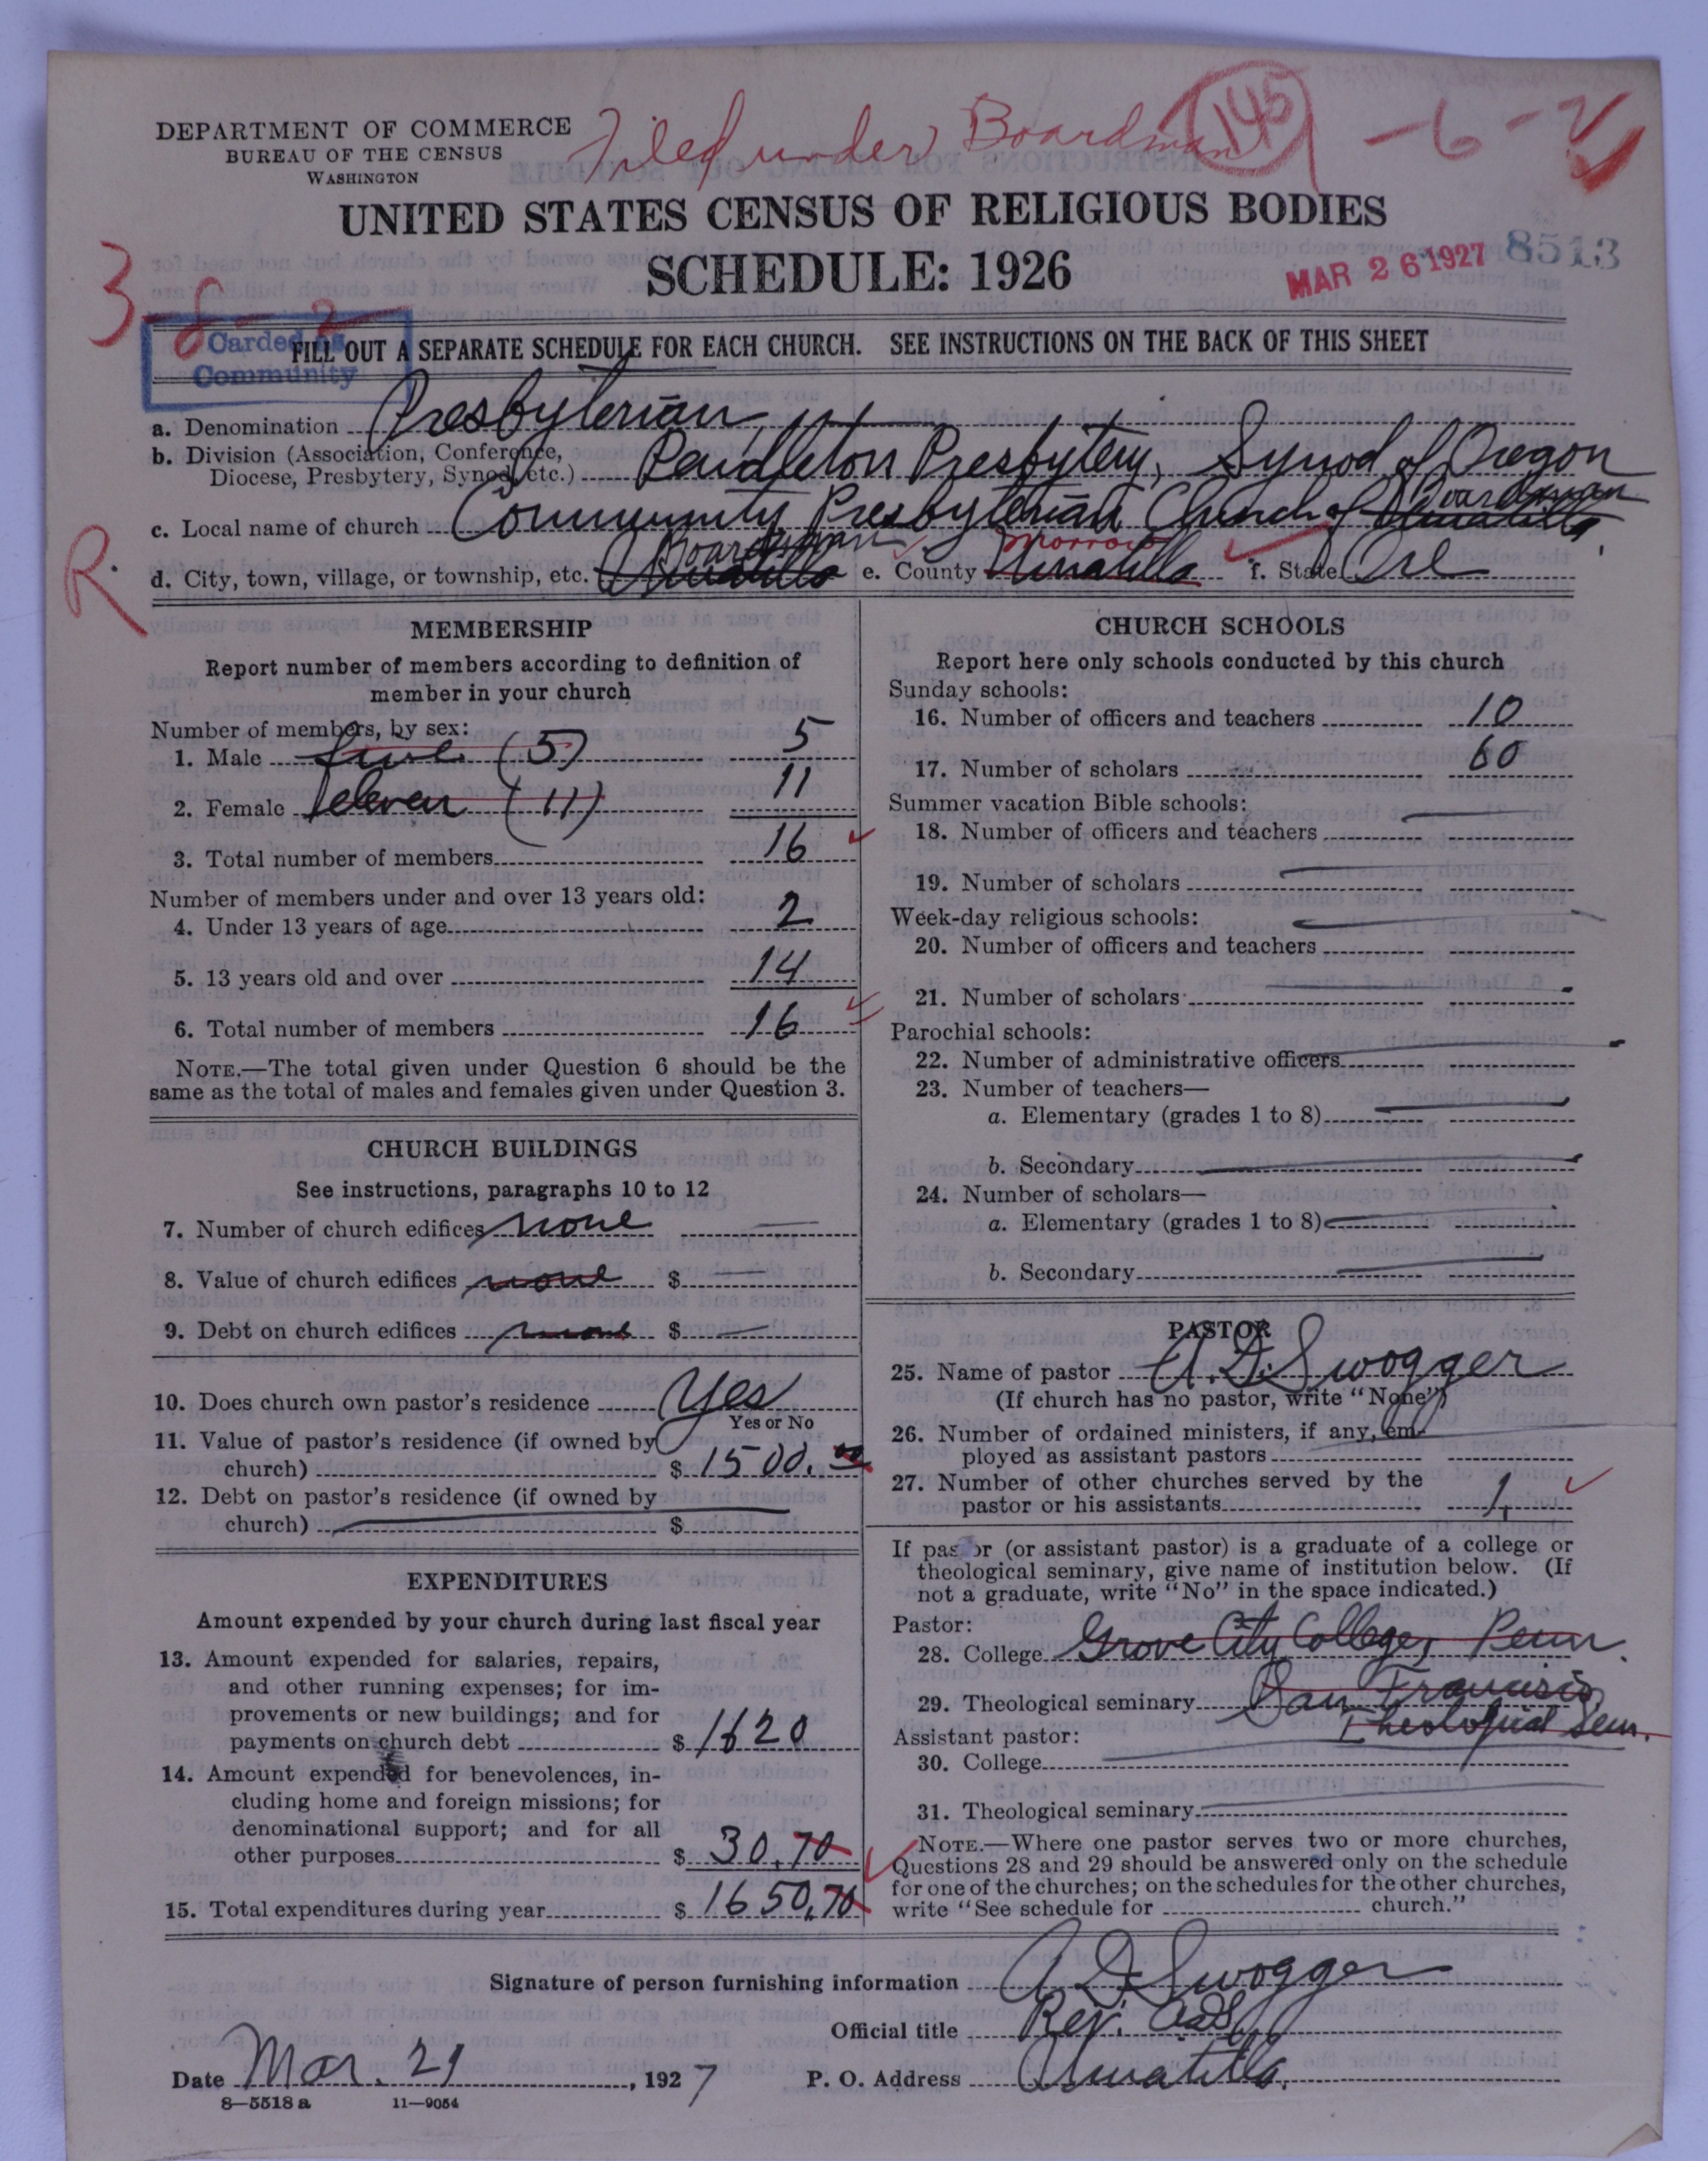 Filed under Boardman 145 -6-2
DEPARTMENT OF COMMERCE
BUREAU OF THE CENSUS
WASHINGTON
UNITED STATES CENSUS OF RELIGIOUS BODIES
SCHEDULE: 1926
MAR 26 1927 8513
3-8-2
Carded as
Community
FILL OUT A SEPARATE SCHEDULE FOR EACH CHURCH. SEE INSTRUCTIONS ON THE BACK OF THIS SHEET
a. Denomination Presbyterian
b. Division (Association, Conference,
Diocese, Presbytery, Synod, etc.) Pendleton Presbytery, Synod of Oregon
c. Local name of church Community Presbyterian Church of Umatilla, Boardman
R.
d. City, town, village, or township, etc. Umatilla Boardman e. County Umatilla Morrow f. State Ore
MEMBERSHIP
Report number of members according to definition of
member in your church
Number of members, by sex:
1. Male five (5) 5
2. Female eleven (11) 11
3. Total number of members 16
Number of members under and over 13 years old:
4. Under 13 years of age 2
5. 13 years old and over 14
6. Total number of members 16
NOTE.—The total given under Question 6 should be the
same as the total of males and females given under Question 3.
CHURCH BUILDINGS
See instructions, paragraphs 10 to 12
7. Number of church edifices none
8. Value of church edifices none $
9. Debt on church edifices none $
10. Does church own pastor's residence Yes
Yes or No
11. Value of pastor's residence (if owned by
church) $ 1500.00
12. Debt on pastor's residence (if owned by
church) $
EXPENDITURES
Amount expended by your church during last fiscal year
13. Amount expended for salaries, repairs,
and other running expenses; for im-
provements or new buildings; and for
payments on church debt $ 1620
14. Amount expended for benevolences, in-
cluding home and foreign missions; for
denominational support; and for all
other purposes $ 30.70
15. Total expenditures during year $ 1650.70
CHURCH SCHOOLS
Report here only schools conducted by this church
Sunday schools:
16. Number of officers and teachers 10
17. Number of scholars 60
Summer vacation Bible schools:
18. Number of officers and teachers
19. Number of scholars
Week-day religious schools:
20. Number of officers and teachers
21. Number of scholars
Parochial schools:
22. Number of administrative officers
23. Number of teachers—
a. Elementary (grades 1 to 8)
b. Secondary
24. Number of scholars—
a. Elementary (grades 1 to 8)
b. Secondary
PASTOR
25. Name of pastor A. D. Swogger
(If church has no pastor, write "None")
26. Number of ordained ministers, if any, em-
ployed as assistant pastors
27. Number of other churches served by the
pastor or his assistants 1
If pastor (or assistant pastor) is a graduate of a college or
theological seminary, give name of institution below. (If
not a graduate, write "No" in the space indicated.)
Pastor:
28. College Grove City College, Penn.
29. Theological seminary San Francisco
Theological Sem.
Assistant pastor:
30. College
31. Theological seminary
NOTE.—Where one pastor serves two or more churches,
Questions 28 and 29 should be answered only on the schedule
for one of the churches; on the schedules for the other churches,
write "See schedule for church."
Signature of person furnishing information A D Swogger
Official title Rev.
Date Mar. 21, 1927 P. O. Address Umatilla.
8—5518 a 11—9054